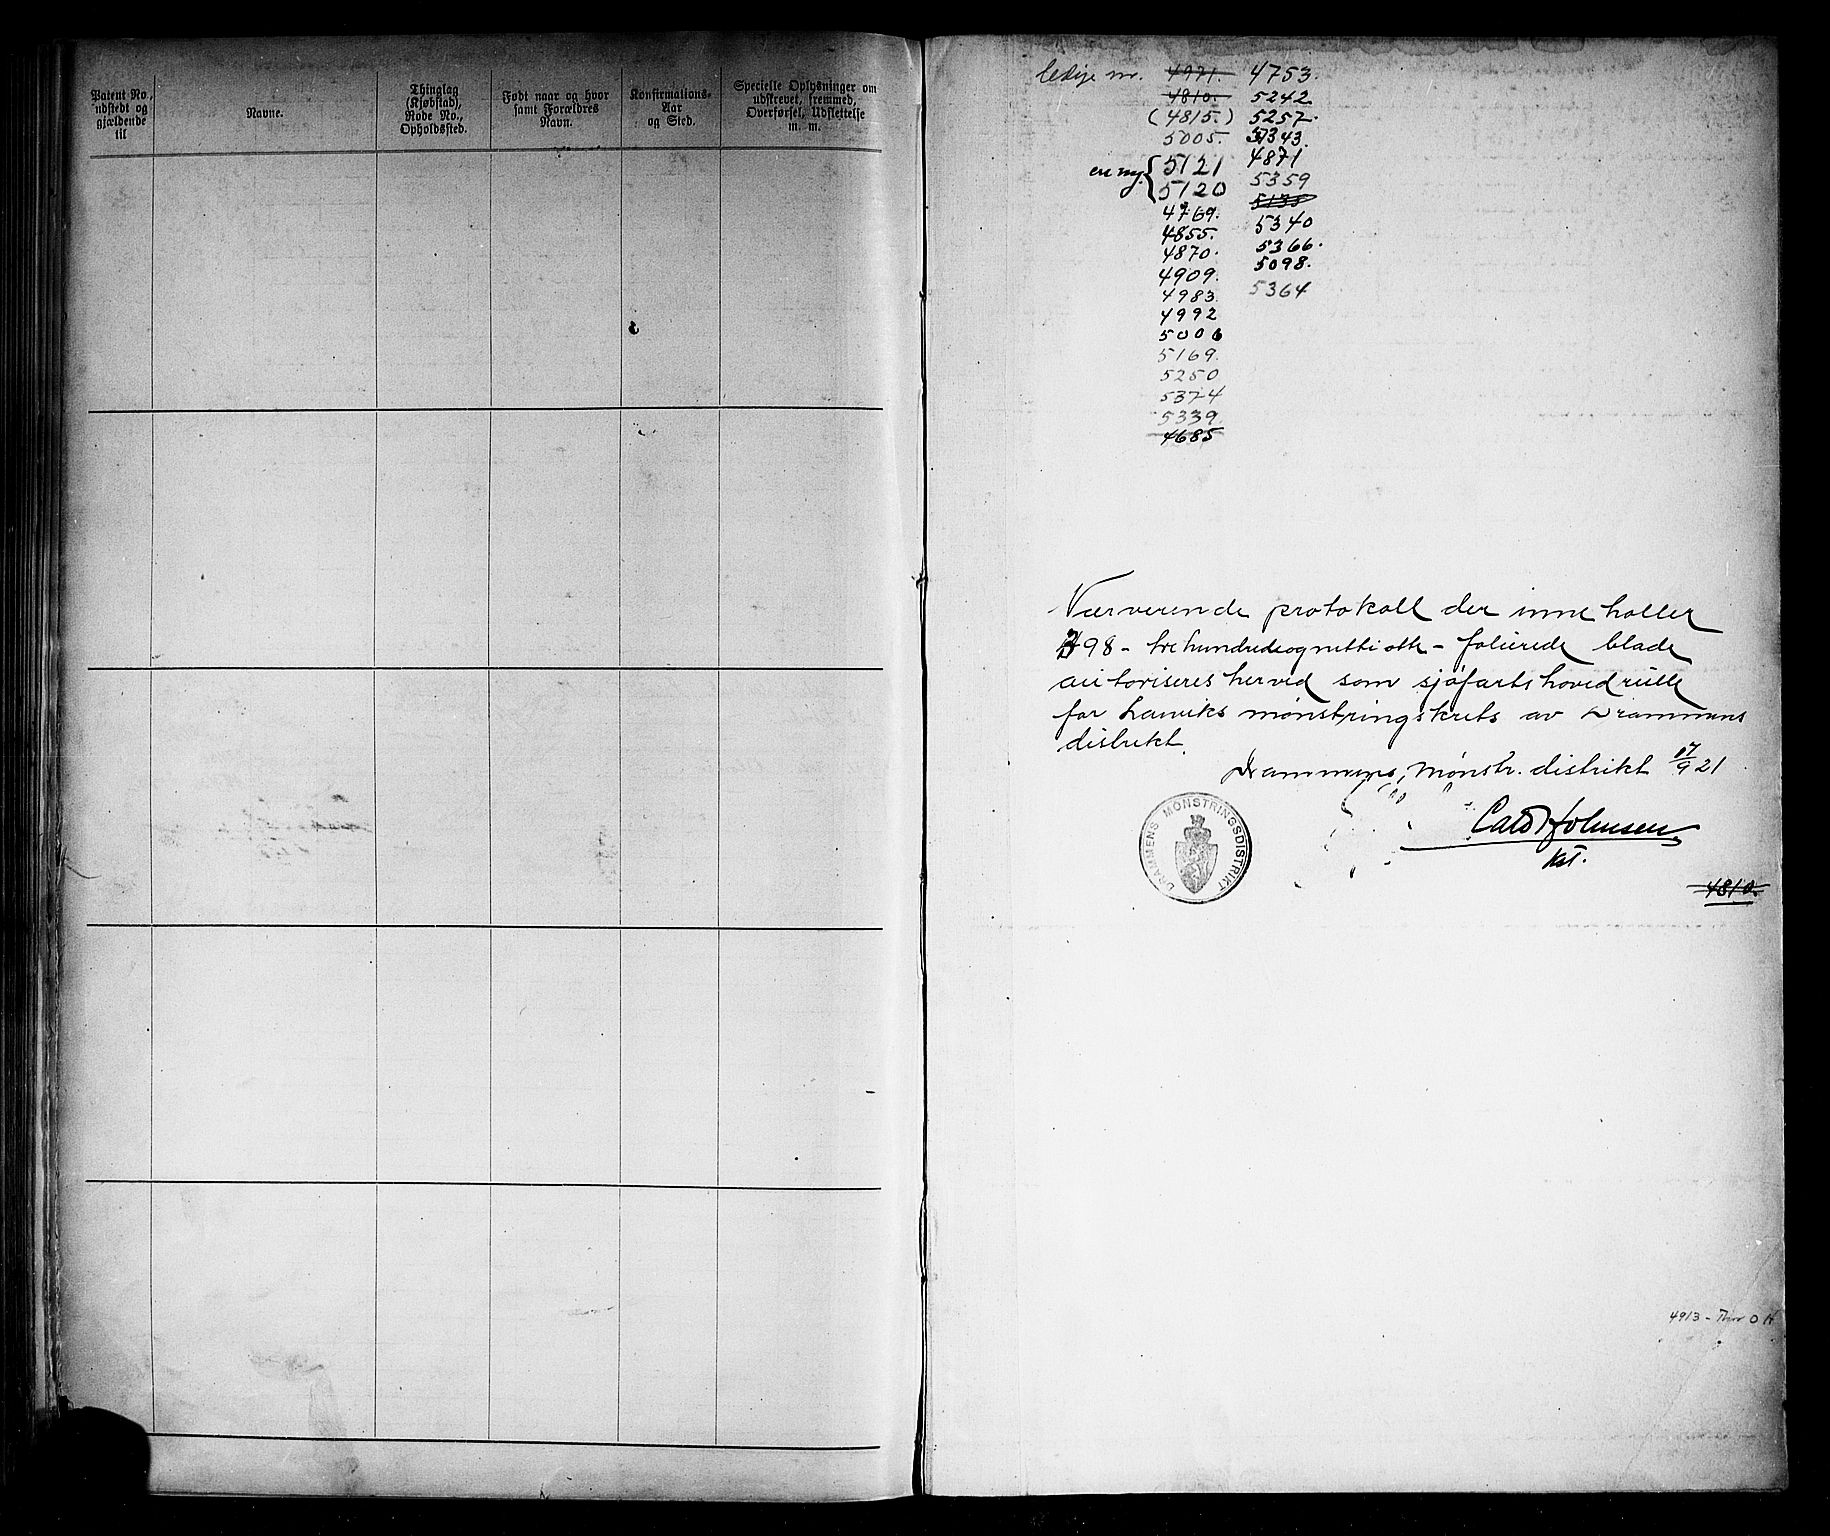 Patent No.,
udstedt og
gjældende
til
Navne.
Thinglag
(Kjøbstad),
Rode No.,
Opholdssted.
Født naar og hvor
samt Forældres
Navn.
Konfirmations-
Aar
og Sted.
Specielle Oplysninger om
udskrevet, fremmed,
Overførsel, Udslettelse
m. m.
ledige nr. 4971. 4753.
4810. 5242
(4815.) 5257.
5005. 5343.
en ny. 5121 4871
5120 5359
4769. 5135
4855. 5340
4870. 5366.
4909. 5098.
4983. 5364
4992
5006
5169.
5250
5374
5339.
4685
Nærverende protokoll der inneholler
398 - trehundredeognittiotte - folierede blade
autoriseres herved som sjøfartshovedrulle
for Larviks mønstringskrets av Drammens
distrikt.
Drammens, Mønstr. distrikt 17/9 21
DRAMMENS MØNSTRINGSDISTRIKT
Johnsen
kst.
4810.
4913 - Thor O H